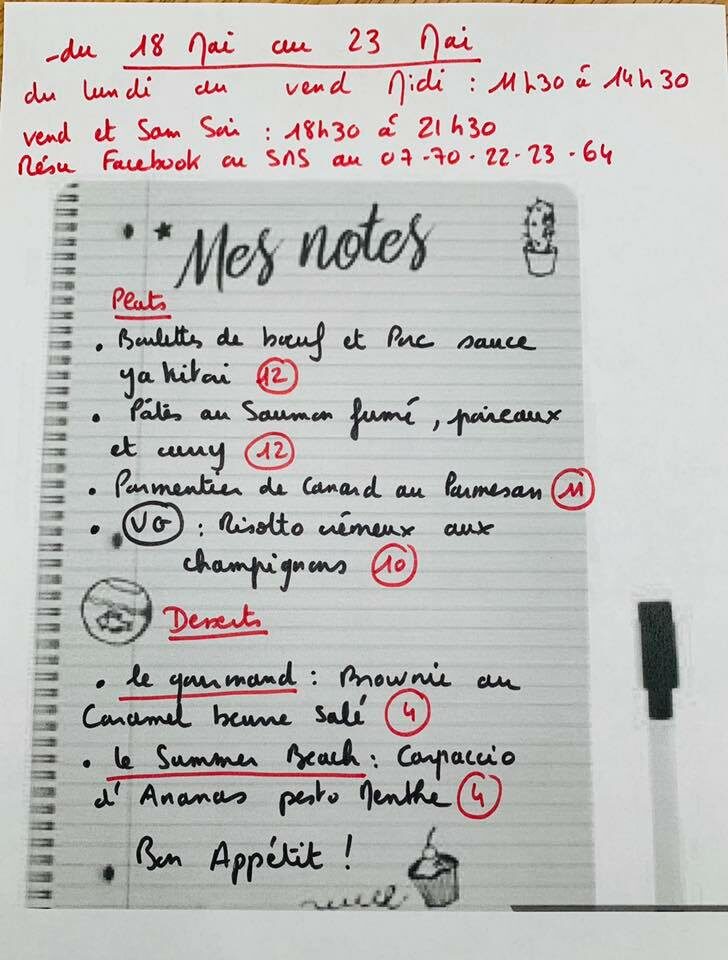 -du 18 Mai au 23 Mai
du lundi au vend Midi : 11h30 à 14h30
vend et Sam Soir : 18h30 à 21h30
Résa Facebook ou SMS au 07-70-22-23-64
Mes notes
Plats
• Boulettes de bœuf et Porc sauce
yakitori 12
• Pâtes au Saumon fumé, poireaux
et curry 12
• Parmentier de Canard au Parmesan 11
• VG : Risotto crémeux aux
champignons 10
Desserts
• le gourmand : Brownie au
Caramel beurre salé 4
• le Summer Beach : Carpaccio
d'Ananas pesto Menthe 4
Bon Appétit !